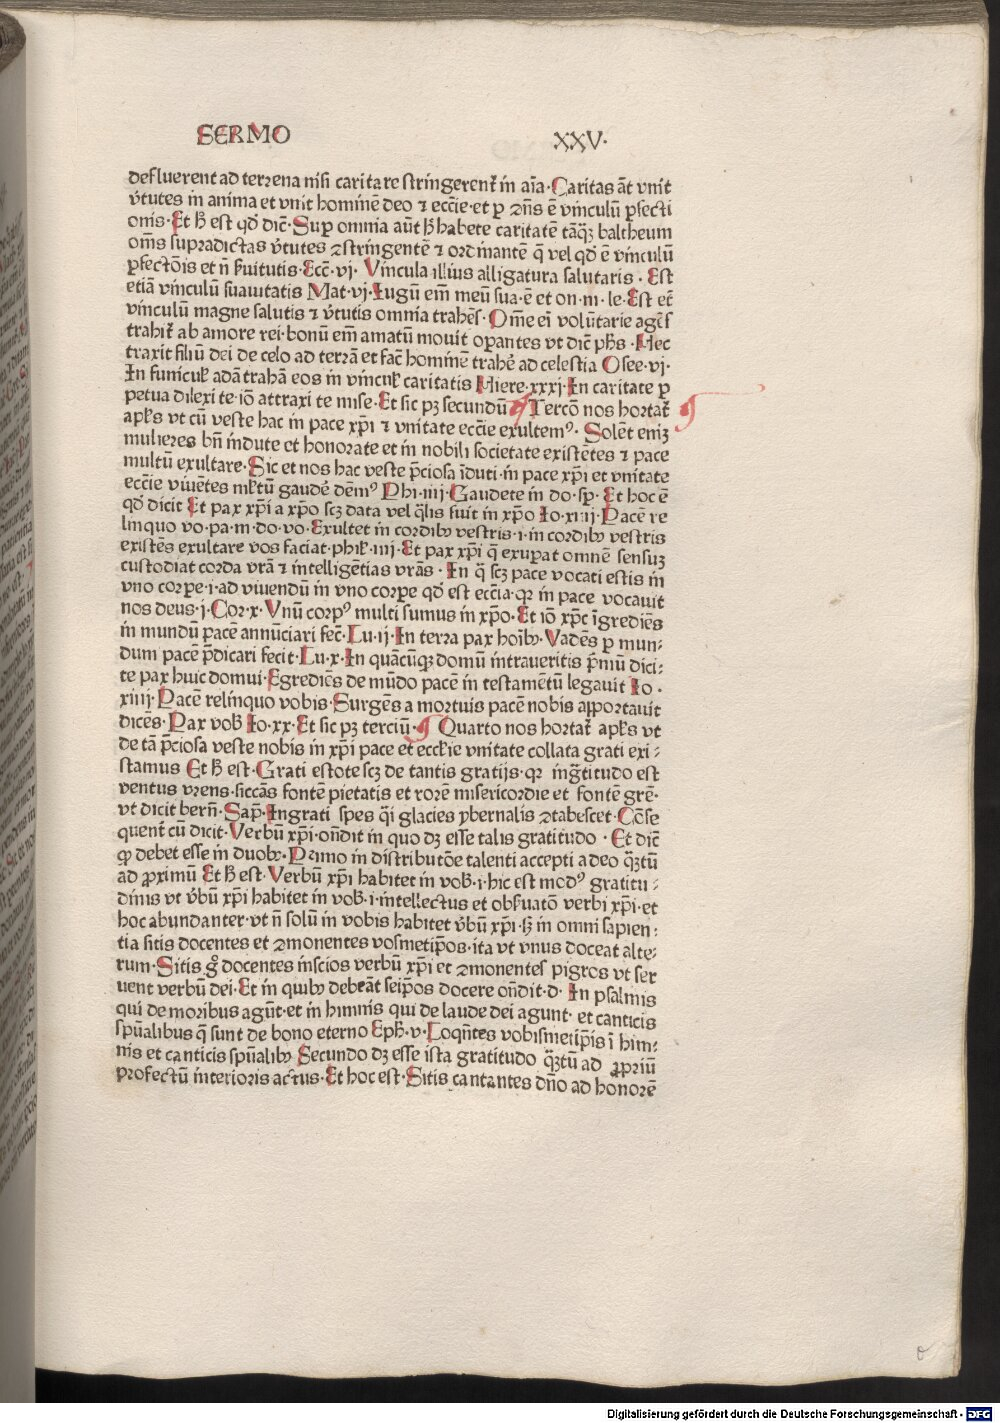 SERMO XXV·
defluerent ad terrena nisi caritate stringerent᷑ in aĩa·Caritas ãt vnit
v̾tutes in anima et vnit hominẽ deo ⁊ ecc̃ie·et ꝑ ꝯñs ẽ vinculũ ꝑfecti
onis·Et h̾ est qd̾ dic̃·Suꝑ omnia aũt h̾ habete caritatẽ tãq̃ꝫ baltheum
om̃s supradictas v̾tutes ꝯstringentẽ ⁊ ordinantẽ q̃ vel qd̾ ẽ vinculũ
ꝑfectõis et ñ s̾uitutis·Ecc̃·vj· Vincula illius alligatura salutaris · Est
etiã vinculũ suauitatis Mat·vj·Iugũ em̃ meũ sua·ẽ et on·m·le·Est et̃
vinculũ magne salutis ⁊ v̾tutis omnia trahẽs·Om̃e ei volũtarie agẽs
trahit᷑ ab amore rei·bonũ em̃ amatũ mouit oꝑantes vt dic̃ ph̃s ·Hec
traxit filiũ dei de celo ad terrã et fac̃ hominẽ trahẽ ad celestia Osee·vj·
In funicul̾ adã trahã eos in vincul̾ caritatis Hiere·xxxj·In caritate ꝑ
petua dilexi te·iõ attraxi te mise·Et sic pꝫ secundũ ¶ Tercõ nos hortat᷑
apl̾s vt cũ veste hac in pace xp̃i ⁊ vnitate ecc̃ie exultem⁹· Solẽt eniꝫ
mulieres bñ indute et honorate et in nobili societate existẽtes ⁊ pace
multũ exultare·Sic et nos hac veste p̃ciosa ĩduti·in pace xp̃i et vnitate
ecc̃ie viuẽtes ml̾tũ gaudẽ dẽm⁹ Phi·iiij·Gaudete in do·sꝑ· Et hoc ẽ
qd̾ dicit Et pax xp̃i a xp̃o scꝫ data vel q̃lis fuit in xp̃o Io·xiiij·Pacẽ re
linquo vo·pa·m·do·vo·Exultet in cordibꝫ vestris·i·in cordibꝫ vestris
existẽs exultare vos faciat·phil̾·iiij·Et pax xp̃i q̃ exuꝑat omnẽ sensuꝫ
custodiat corda vr̃a ⁊ intelligẽtias vr̃as · In q̃ scꝫ pace vocati estis in
vno corꝑe·i·ad viuendũ in vno corꝑe qd̾ est ecc̃ia·qꝛ in pace vocauit
nos deus·j·Cor·x·Vnũ corp⁹ multi sumus in xp̃o·Et iõ xp̃c ĩgrediẽs
in mundũ pacẽ annũciari fec̃·Lu·ij·In terra pax hoĩbꝫ·Vadẽs ꝑ mun-
dum pacẽ p̃dicari fecit·Lu·x·In quãcũqꝫ domũ intraueritis p̃miũ dici-
te pax huic domui·Egrediẽs de mũdo pacẽ in testamẽtũ legauit Io ·
xiiij·Pacẽ relinquo vobis·Surgẽs a mortuis pacẽ nobis apportauit
dicẽs·Pax vob̾ Io·xx·Et sic pꝫ terciũ·¶ Quarto nos hortat᷑ apl̾s vt
de tã p̃ciosa veste nobis in xp̃i pace et eccl̾ie vnitate collata grati exi-
stamus Et h̾ est·Grati estote scꝫ de tantis gratijs·qꝛ ingr̃titudo est
ventus vrens·siccãs fontẽ pietatis et rorẽ misericordie et fontẽ gr̃e·
vt dicit bern̾·Sap̃·Ingrati spes q̃i glacies yberna­lis ꝯtabescet·Cõse
quent᷑ cũ dicit·Verbũ xp̃i·oñdit in quo dꝫ esse talis gratitudo · Et dic̃
ꝙ debet esse in duobꝫ·Primo in distributõe talenti accepti a deo q̃ꝫtũ
ad ꝓximũ Et h̾ est·Verbũ xp̃i habitet in vob̾·i·hic est mod⁹ gratitu-
dinis vt v̾bũ xp̃i habitet in vob̾·i·intellectus et obs̾uatõ verbi xp̃i·et
hoc abundanter·vt ñ solũ in vobis habitet v̾bũ xp̃i·sꝫ in omni sapien-
tia sitis docentes et ꝯmonentes vosmetip̃os·ita vt vnus doceat alte-
rum·Sitis g̊ docentes inscios verbũ xp̃i et ꝯmonentes pigros vt ser
uent verbũ dei·Et in quibꝫ debeãt seip̃os docere oñdit·d· In psalmis
qui de moribus agũt·et in himnis qui de laude dei agunt· et canticis
sp̃ualibus q̃ sunt de bono eterno Eph̾·v·Loqñtes vobismetip̃is ĩ him-
nis et canticis sp̃ualibꝫ Secundo dꝫ esse ista gratitudo q̃ꝫtũ ad ꝓpriũ
profectũ interioris actus·Et hoc est·Sitis cantantes dño ad honorẽ
Digitalisierung gefördert durch die Deutsche Forschungsgemeinschaft - DFG